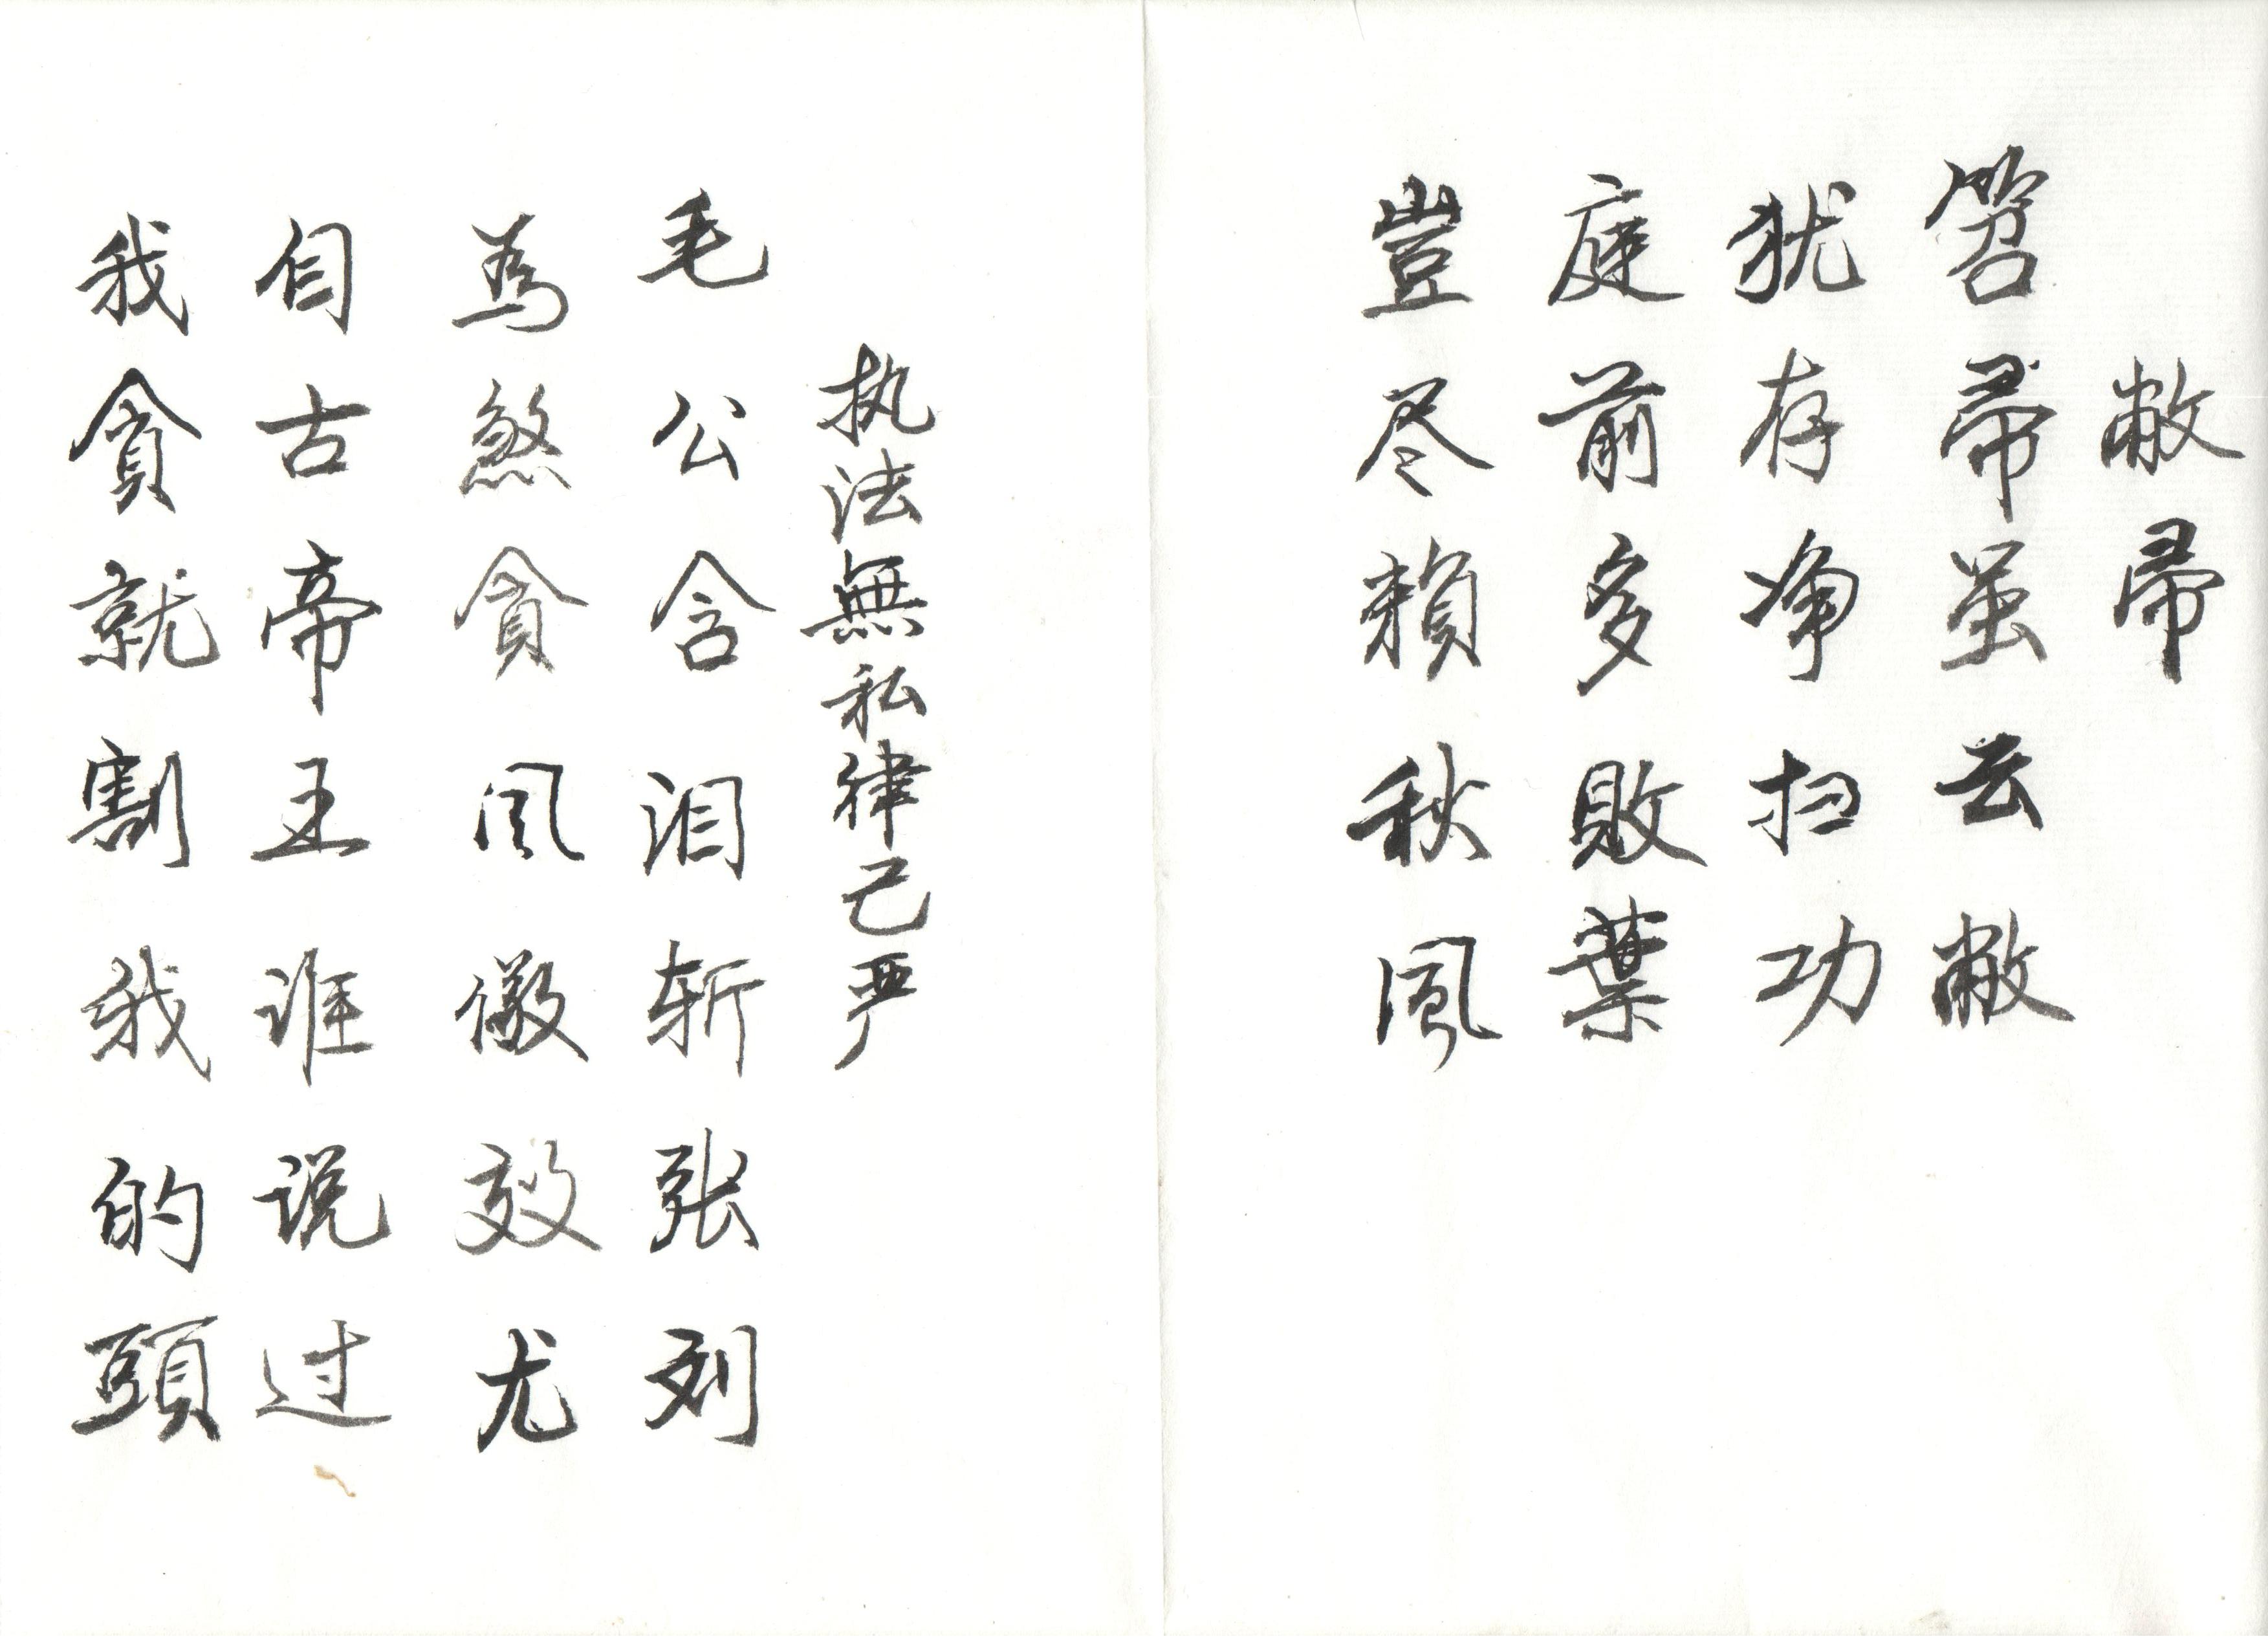 敝帚
笤帚虽云敝
犹存净扫功
庭前多敗葉
豈尽賴秋風
执法無私律己严
毛公含泪斩张刘
為煞貪风儆效尤
自古帝王谁说过
我貪就割我的頭